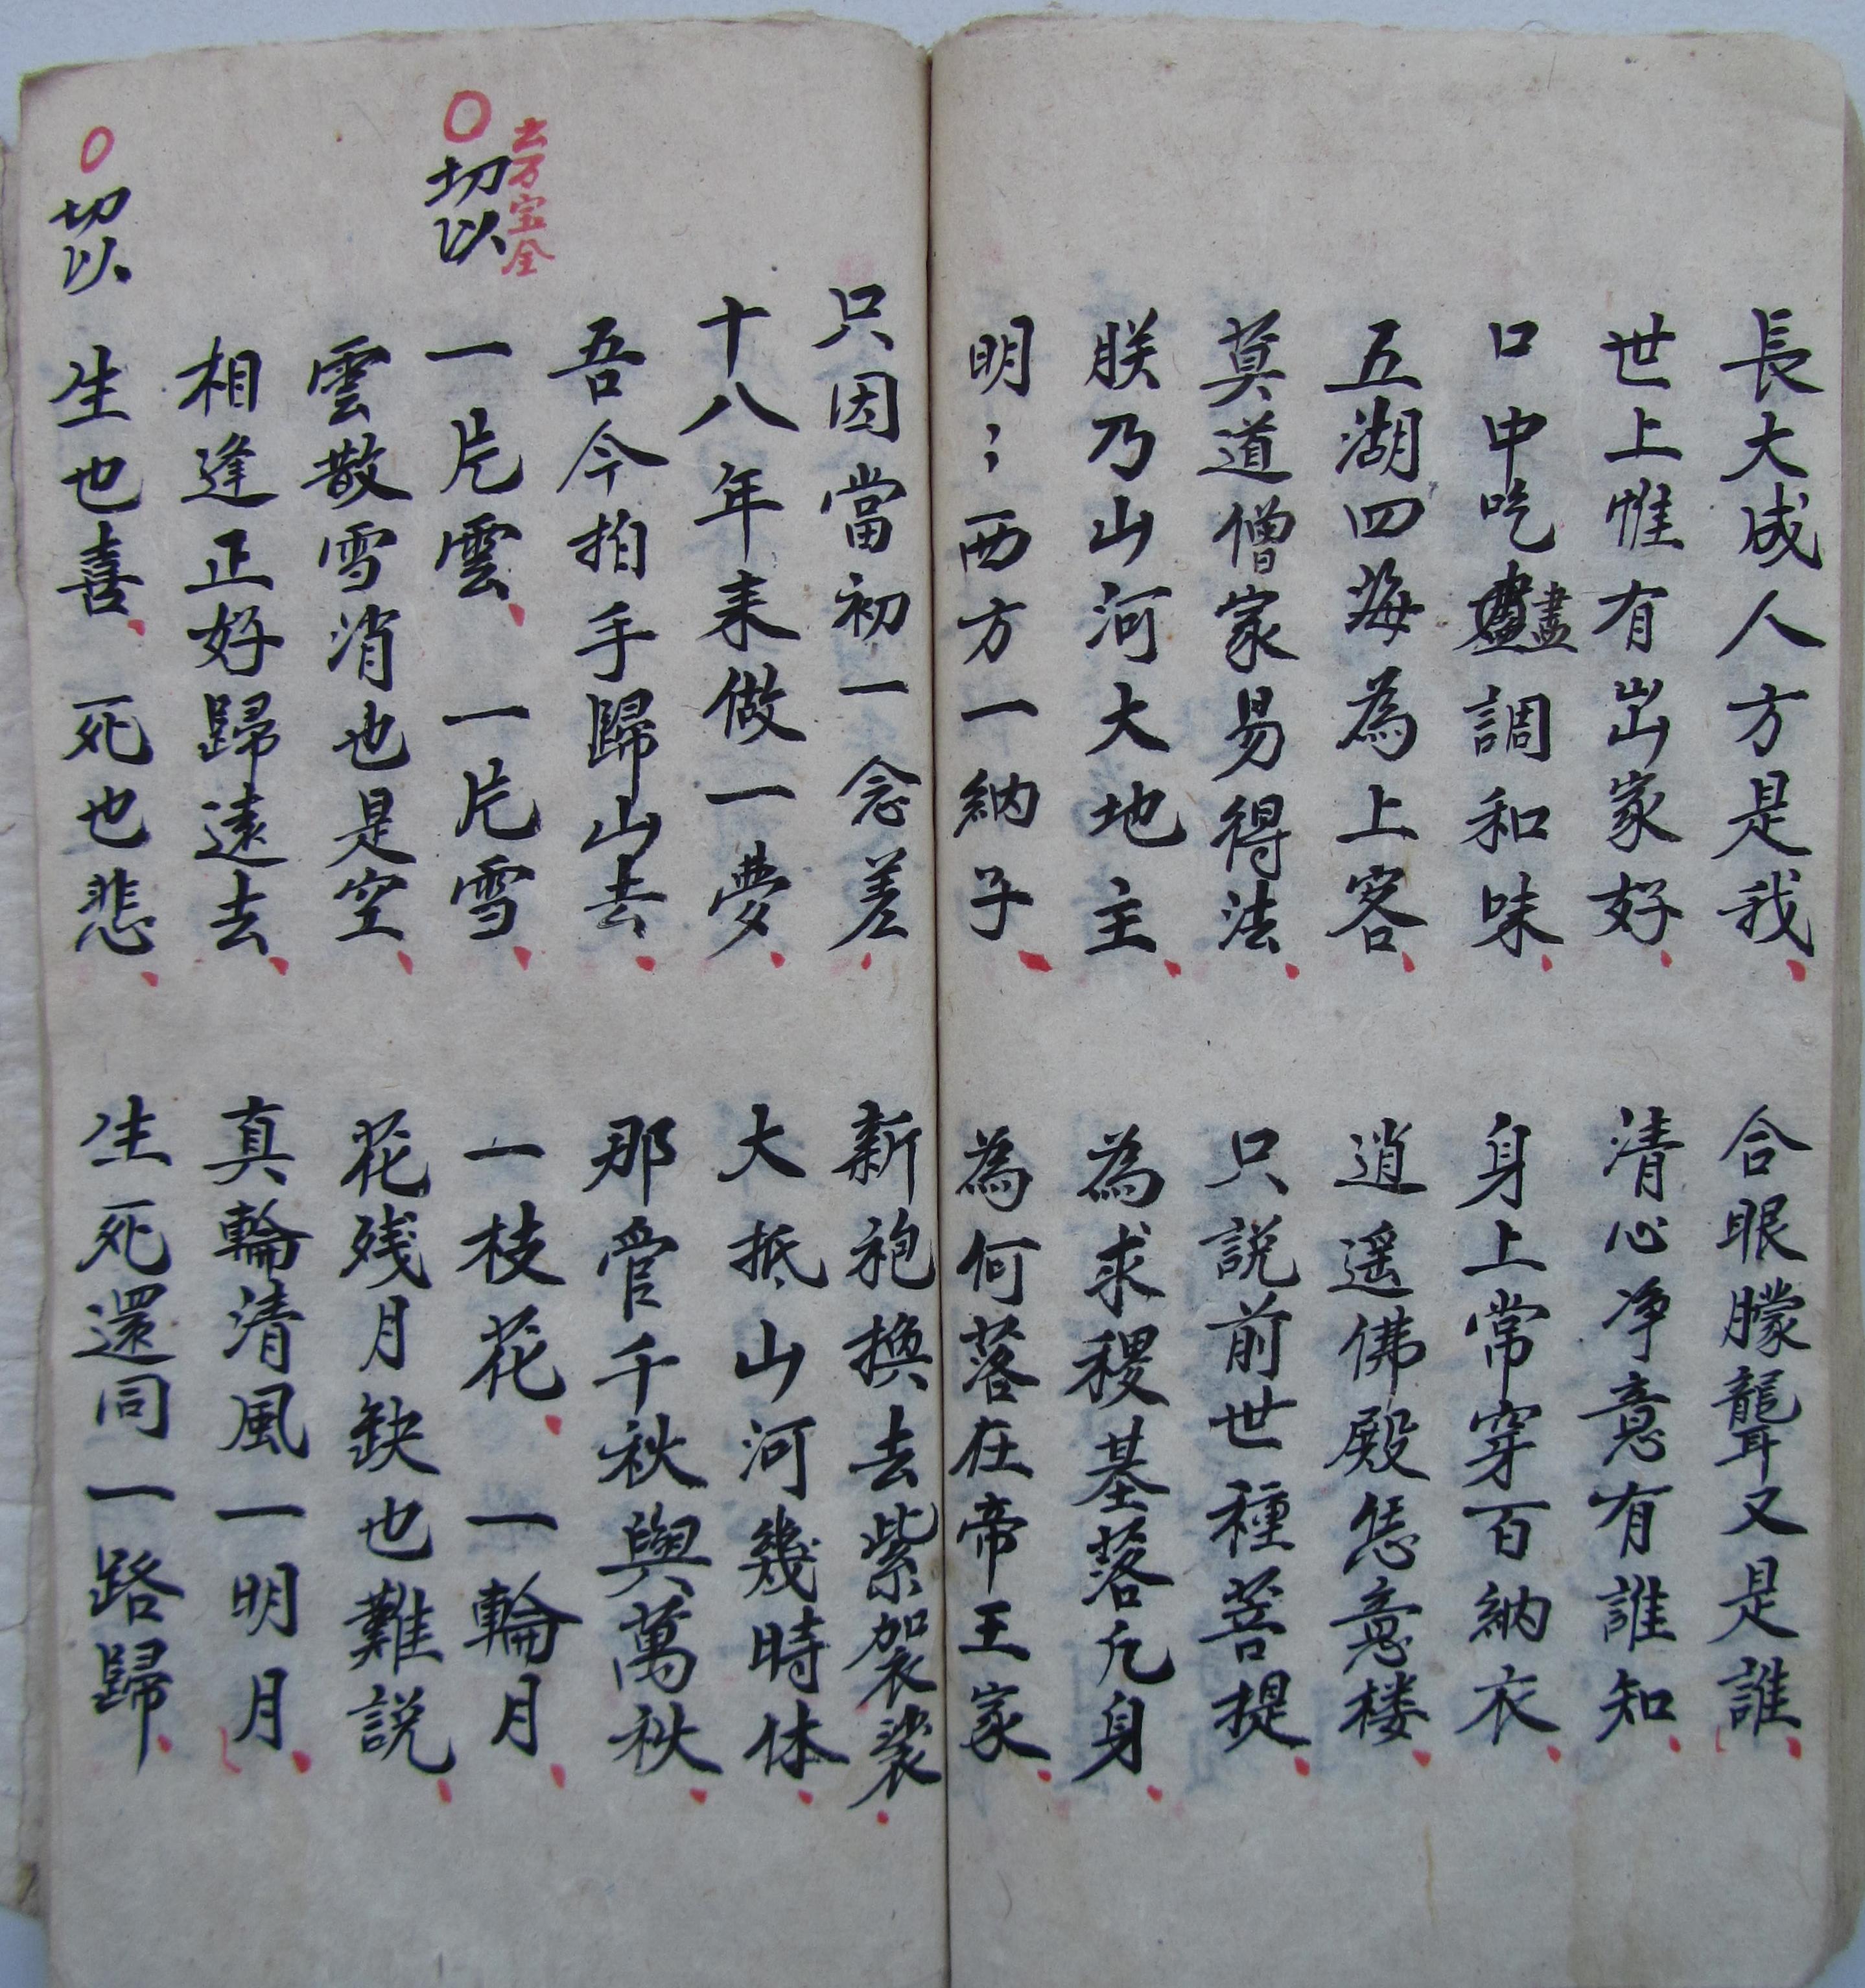 長大成人方是我 合眼朦聾又是誰
世上惟有出家好 清心净意有誰知
口中吃盡調和味 身上常穿百納衣
五湖四海為上客 逍遥佛殿恁意楼
莫道僧家易得法 只説前世種菩提
朕乃山河大地主 為求稷基落凡身
明〻西方一納子 為何落在帝王家
只因當初一念差 新袍換去紫袈裟
十八年来做一夢 大抵山河幾時休
吾今拍手歸山去 那管千秋與萬秋
去万宝全
切以 一片雲 一片雪 一枝花 一輪月
雲散雪消也是空 花残月缺也難説
相逢正好歸遠去 真輪清風一明月
切以 生也喜 死也悲 生死還同一路歸